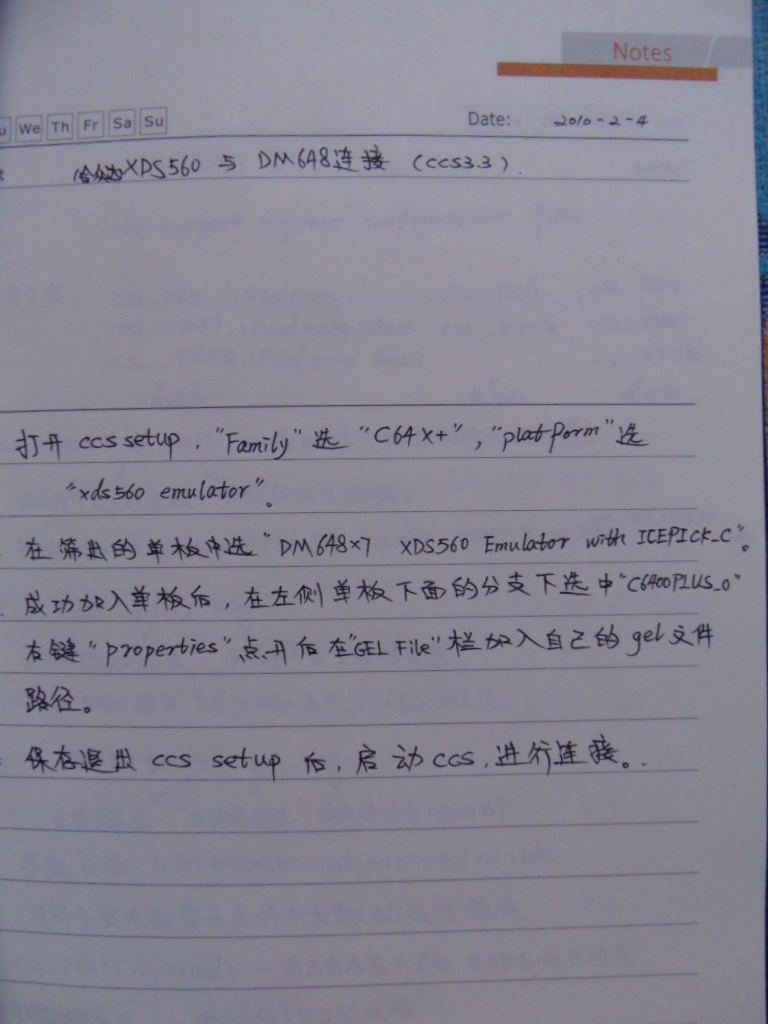 Notes
We Th Fr Sa Su
Date: 2010-2-4
XDS560 与 DM648连接 (CCS3.3).
打开 ccs setup, "Family" 选 "C64X+", "platform" 选
"xds560 emulator"。
在筛出的单板中选 "DM648×7 XDS560 Emulator with ICEPICK_C"。
成功加入单板后, 在左侧单板下面的分支下选中 "C6400PLUS_0"
右键 "properties", 点开后在 "GEL File" 栏加入自己的 gel 文件
路径。
保存退出 ccs setup 后, 启动 ccs, 进行连接。